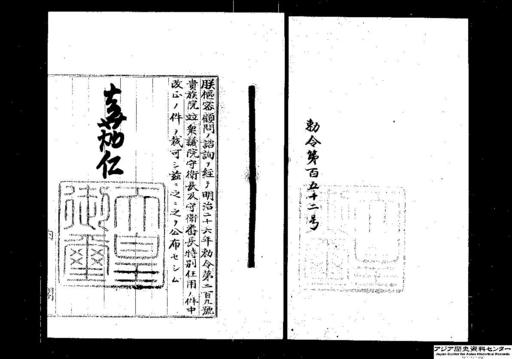 勅令第百五十二号
朕樞密顧問ノ諮詢ヲ經テ明治二十六年勅令第二百九號
貴族院竝衆議院守衛長及守衛番長特別任用ノ件中
改正ノ件ヲ裁可シ茲ニ之ヲ公布セシム
嘉仁
天皇
御璽
アジア歴史資料センター
Japan Center for Asian Historical Records